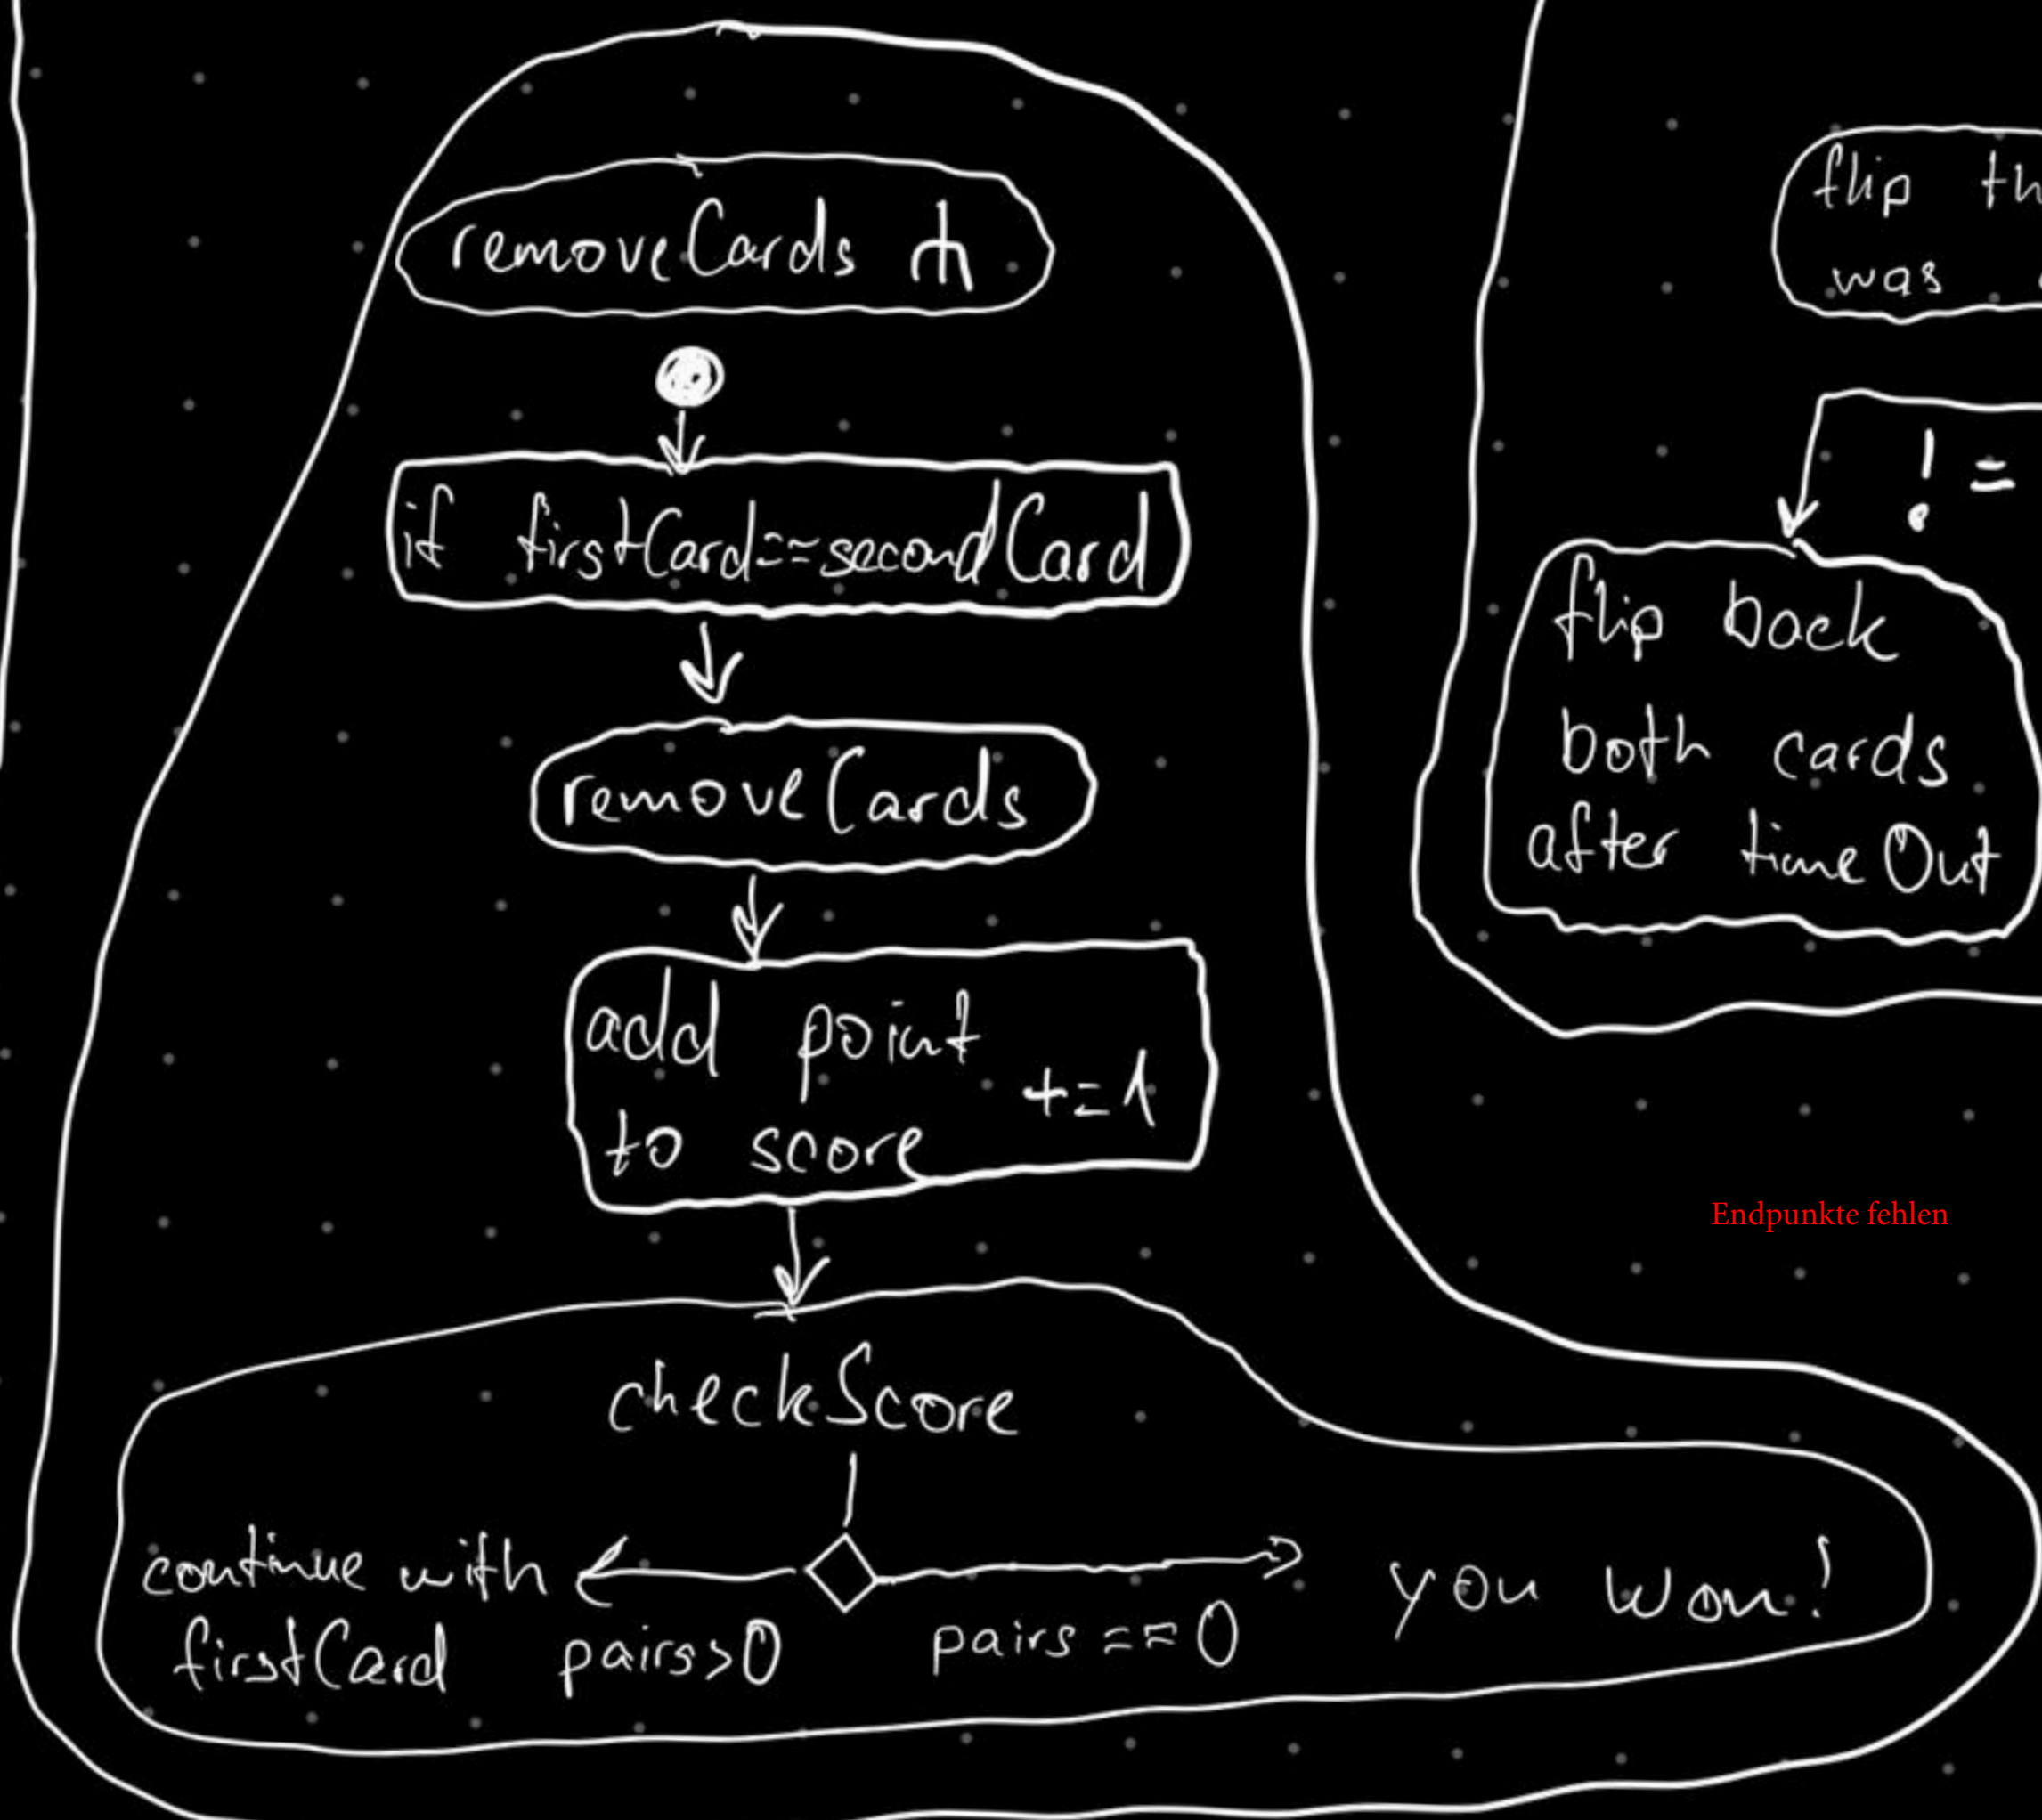 removeCards
if firstCard==secondCard
removeCards
add point
+=1
to score
checkScore
continue with
firstCard
pairs>0
pairs==0
you won!
flip th
was
!=
flip back
both cards
after timeOut
Endpunkte fehlen